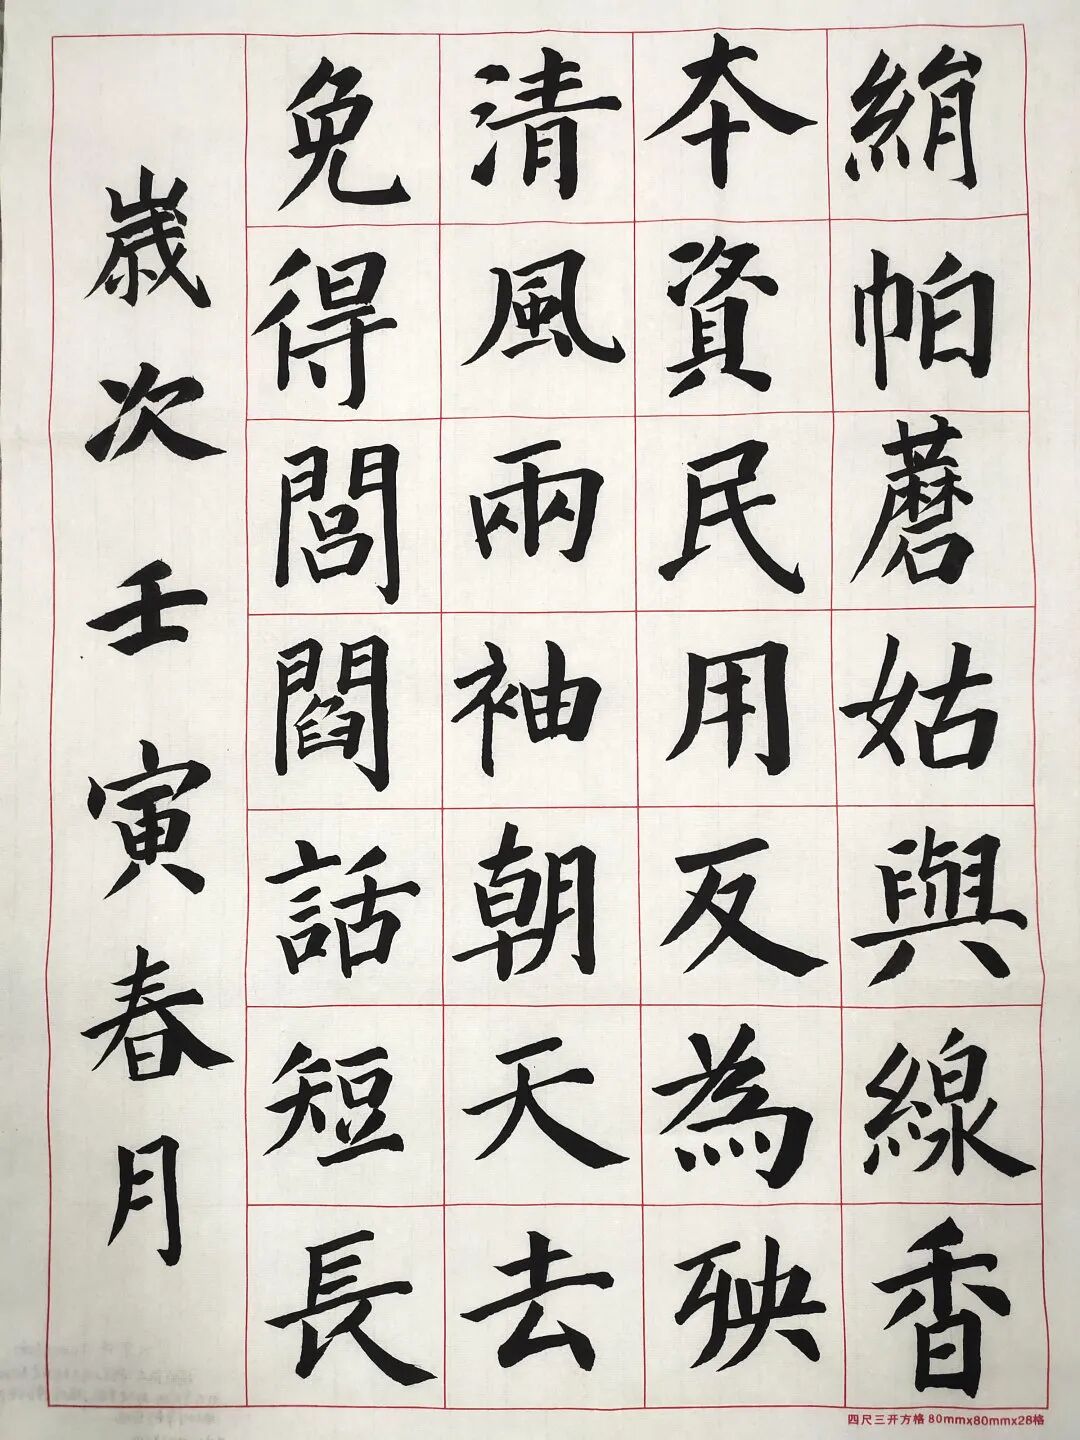 絹帕蘑姑與線香
本資民用反為殃
清風兩袖朝天去
免得閭閻話短長
歲次壬寅春月
四尺三开方格 80mmx80mmx28格